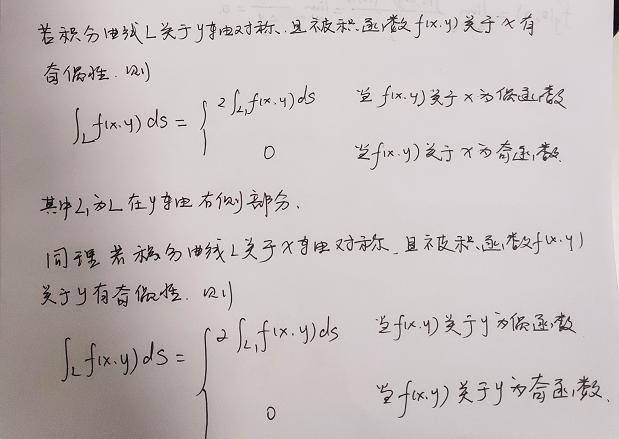 若积分曲线L关于y轴对称.且被积函数f(x.y)关于x有
奇偶性.则
∫_L f(x.y)ds = { 2∫_{L1} f(x.y)ds 当f(x.y)关于x为偶函数
0 当f(x.y)关于x为奇函数.
其中L1为L在y轴右侧部分.
同理 若积分曲线L关于x轴对称.且被积函数f(x.y)
关于y有奇偶性.则
∫_L f(x.y)ds = { 2∫_{L1} f(x.y)ds 当f(x.y)关于y为偶函数
0 当f(x.y)关于y为奇函数.